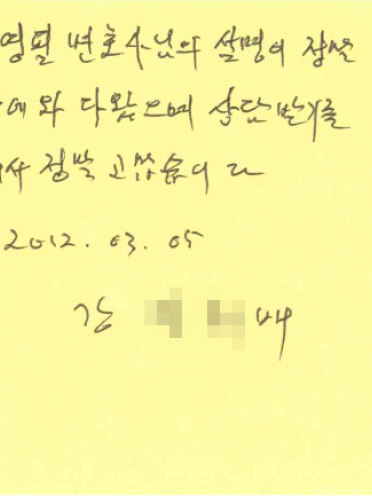 영필 변호사님의 설명이 정말
에 와 다왔으며 상담받기를
정말 고맙습니다
2012. 03. 05
김 배